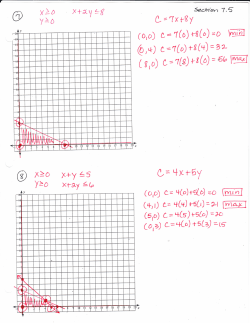 Section 7.5
⑦ x≥0 x+2y≤8
y≥0
C = 7x+8y
(0,0) C=7(0)+8(0)=0 min
(0,4) C=7(0)+8(4)=32
(8,0) C=7(8)+8(0)=56 max
⑧ x≥0 x+y≤5
y≥0 x+2y≤6
C = 4x+5y
(0,0) C=4(0)+5(0)=0 min
(4,1) C=4(4)+5(1)=21 max
(5,0) C=4(5)+5(0)=20
(0,3) C=4(0)+5(3)=15